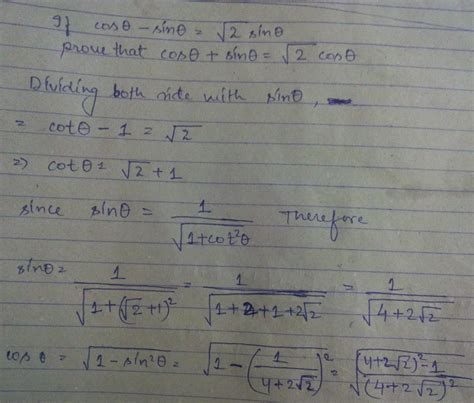 If cosθ - sinθ = √2 sinθ
prove that cosθ + sinθ = √2 cosθ
Dividing both side with sinθ,
= cotθ - 1 = √2
=> cotθ = √2 + 1
since sinθ = 1/√(1+cot²θ) Therefore
sinθ = 1/√(1+(√2+1)²) = 1/√(1+2+1+2√2) = 1/√(4+2√2)
cosθ = √(1-sin²θ) = √(1-(1/(4+2√2))²) = √(((4+2√2)²-1)/(4+2√2)²)